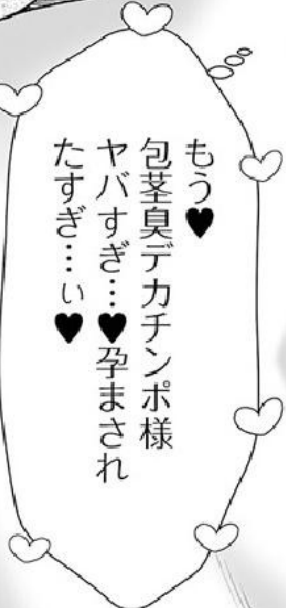 もう♥
包茎臭デカチンポ様
ヤバすぎ…♥孕まされ
たすぎ…ぃ♥